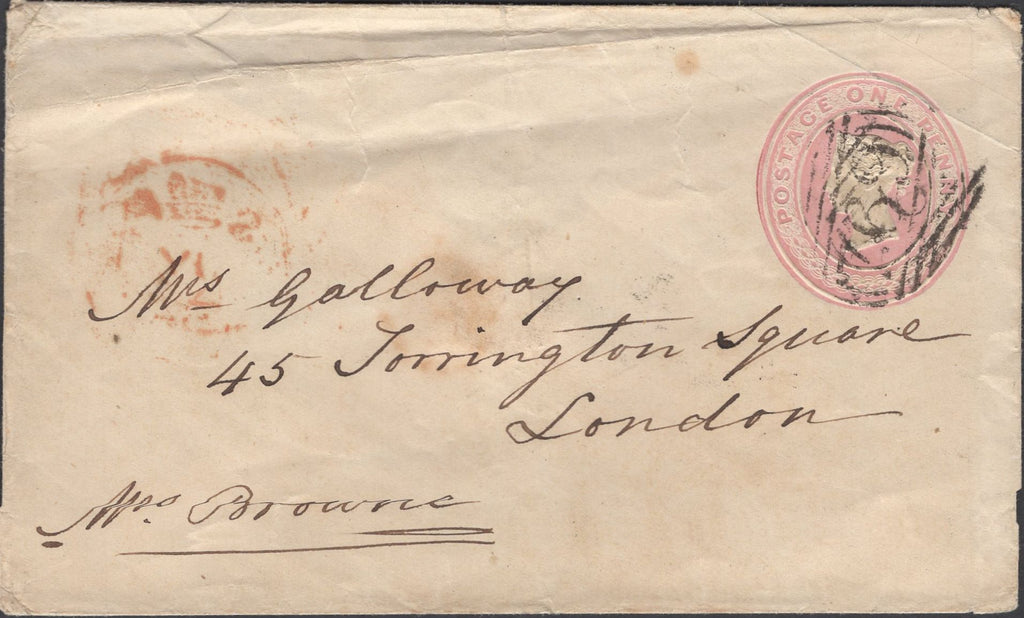 POSTAGE ONE PENNY
Mrs Galloway
45 Torrington Square
London
Mrs. Browne